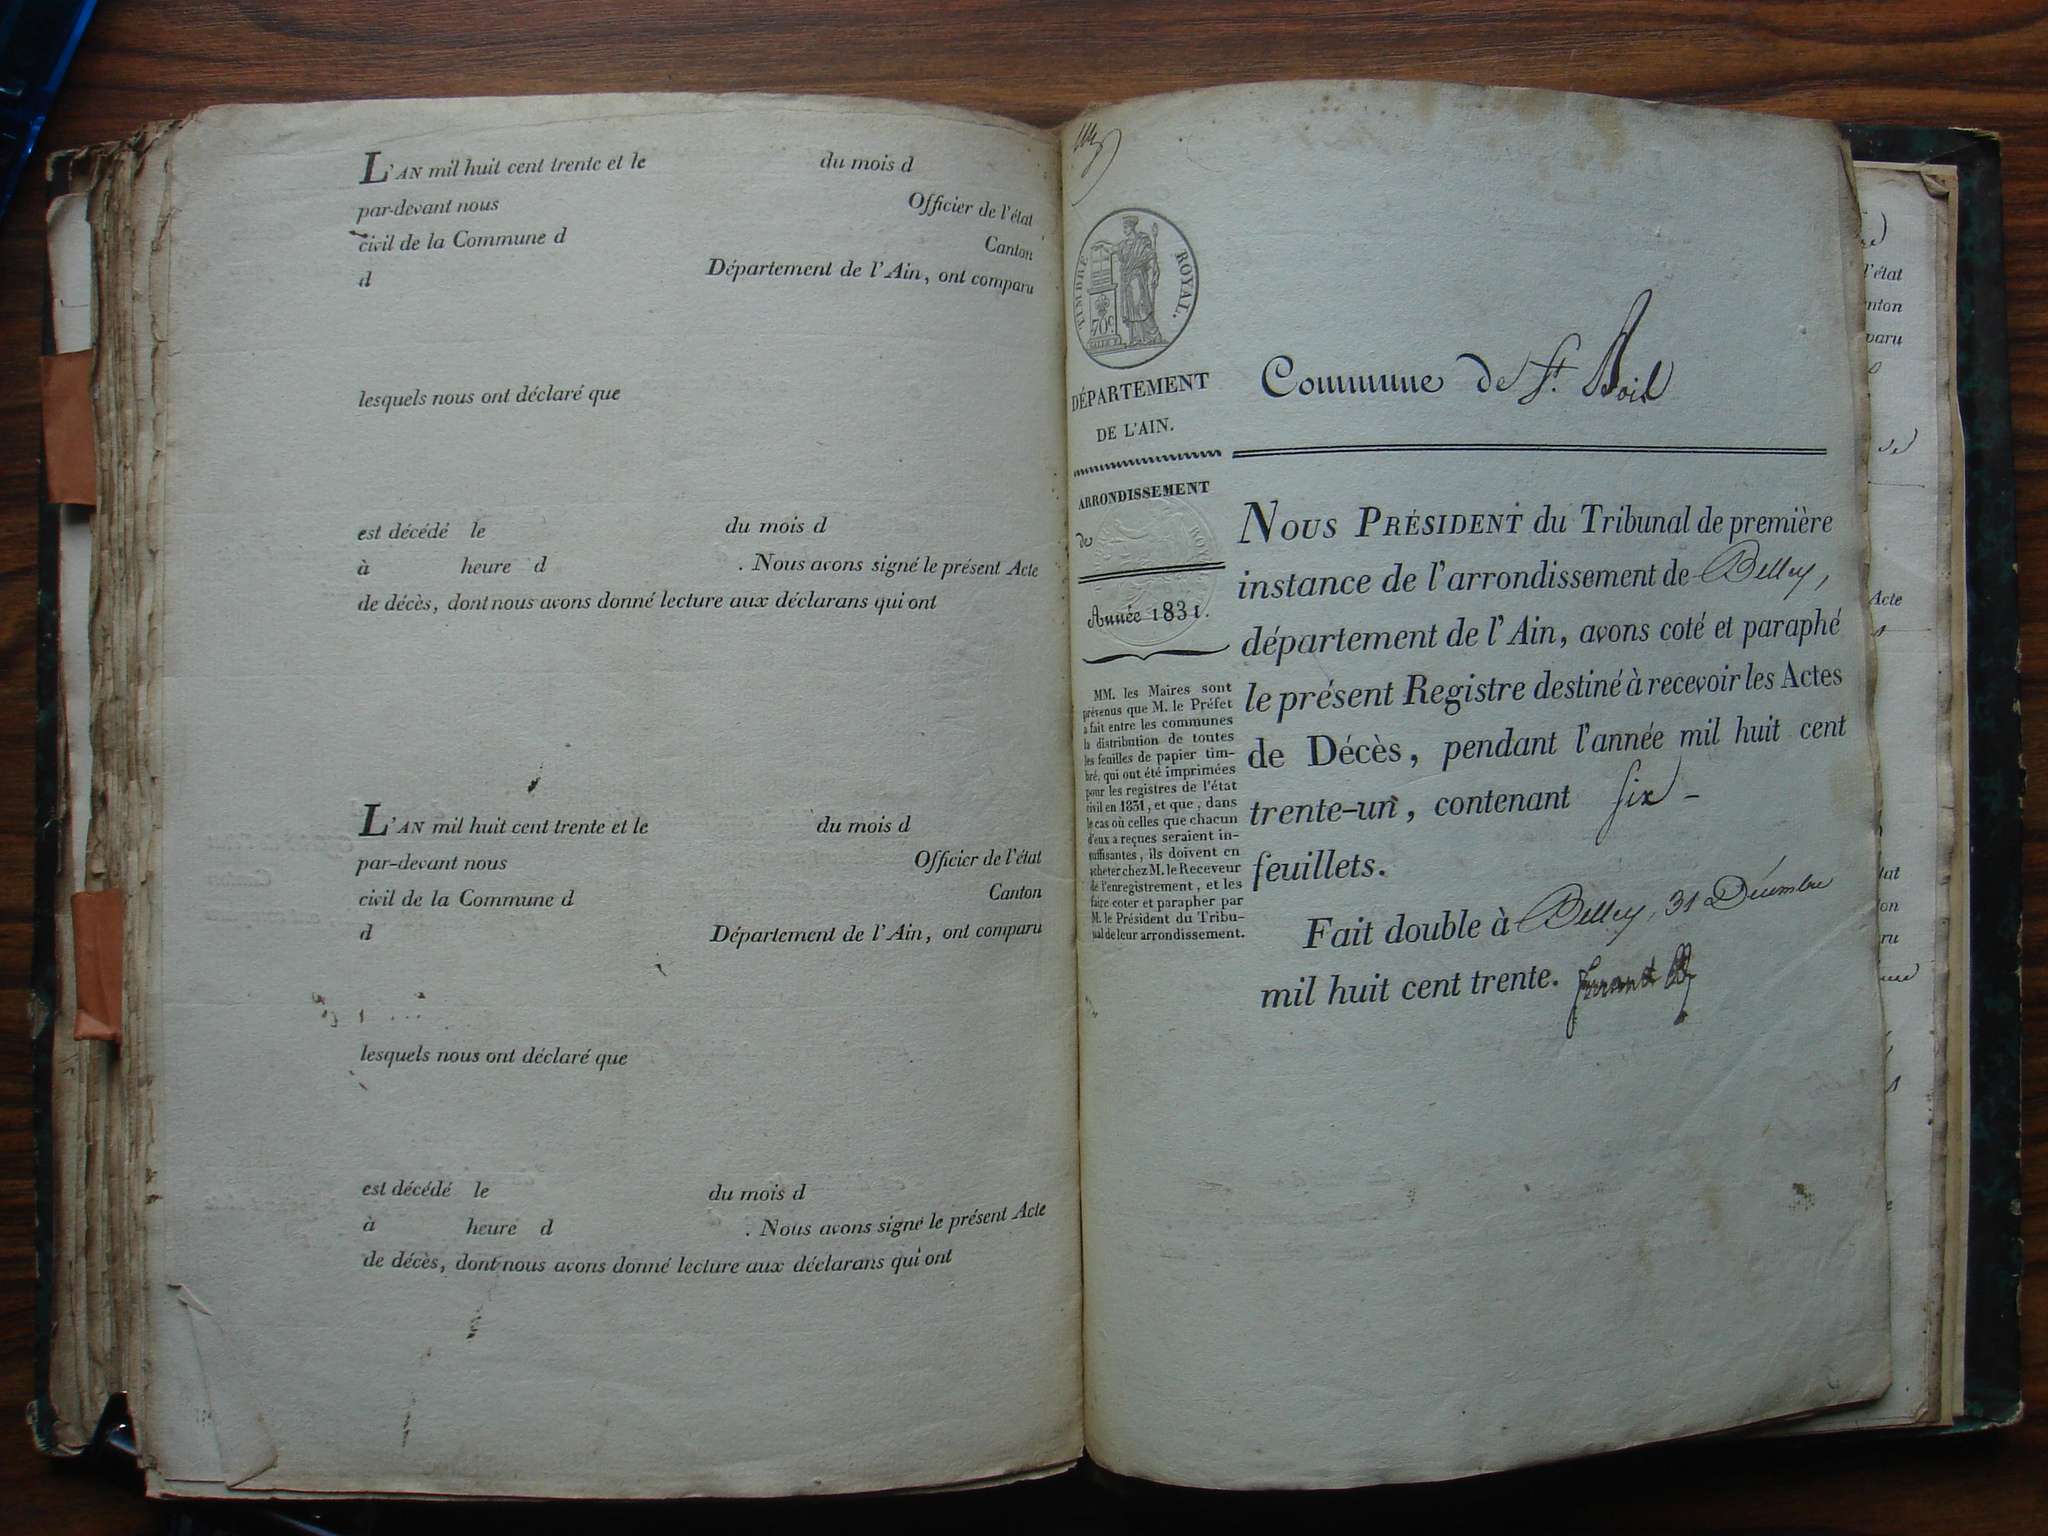 L'AN mil huit cent trente et le du mois d
par-devant nous Officier de l'état
civil de la Commune d Canton
d Département de l'Ain, ont comparu
lesquels nous ont déclaré que
est décédé le du mois d
à heure d . Nous avons signé le présent Acte
de décès, dont nous avons donné lecture aux déclarans qui ont
L'AN mil huit cent trente et le du mois d
par-devant nous Officier de l'état
civil de la Commune d Canton
d Département de l'Ain, ont comparu
lesquels nous ont déclaré que
est décédé le du mois d
à heure d . Nous avons signé le présent Acte
de décès, dont nous avons donné lecture aux déclarans qui ont
TIMBRE ROYAL.
70c
DÉPARTEMENT
DE L'AIN.
ARRONDISSEMENT
de
Année 1831.
MM. les Maires sont
prévenus que M. le Préfet
a fait entre les communes
la distribution de toutes
les feuilles de papier tim-
bré, qui ont été imprimées
pour les registres de l'état
civil en 1831, et que, dans
le cas où celles que chacun
d'eux a reçues seraient in-
suffisantes, ils doivent en
acheter chez M. le Receveur
de l'enregistrement, et les
faire coter et parapher par
M. le Président du Tribu-
nal de leur arrondissement.
Commune de St. Boil
NOUS PRÉSIDENT du Tribunal de première
instance de l'arrondissement de Belley,
département de l'Ain, avons coté et paraphé
le présent Registre destiné à recevoir les Actes
de Décès, pendant l'année mil huit cent
trente-un, contenant six -
feuillets.
Fait double à Belley, 31 Décembre
mil huit cent trente.
l'état
nton
paru
de
Acte
tat
on
ru